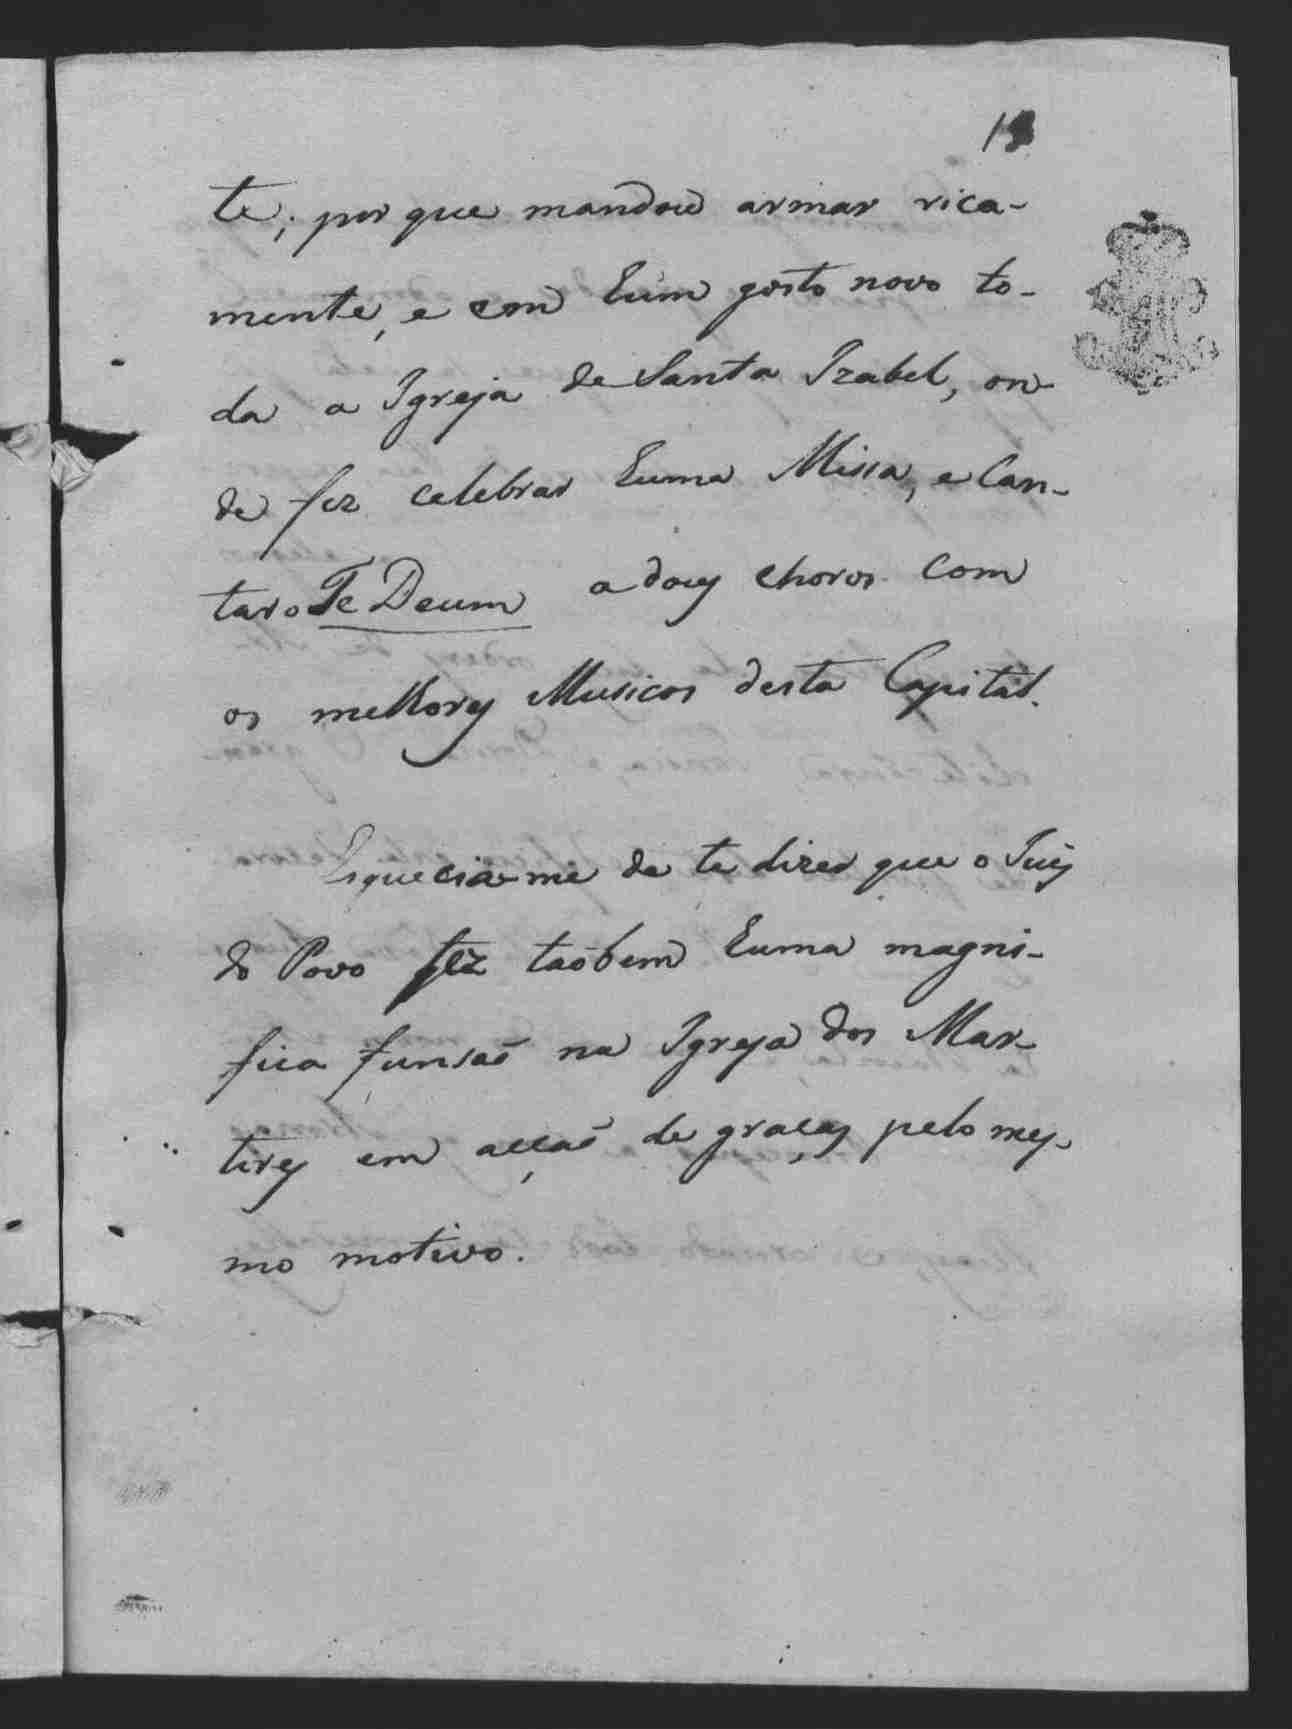 te; por que mandou armar rica-
mente, e com huum gosto novo to-
da a Igreja de Santa Izabel, on-
de fez celebrar huma Missa, e Can-
tar o Te Deum a dous choros com
os melhores Musicos desta Capital.
Esquecia-me de te dizer que o Juis
do Povo fez taõbem huma magni-
fica funsaõ na Igreja dos Mar-
tires em acçaõ de graças pelo mes-
mo motivo.